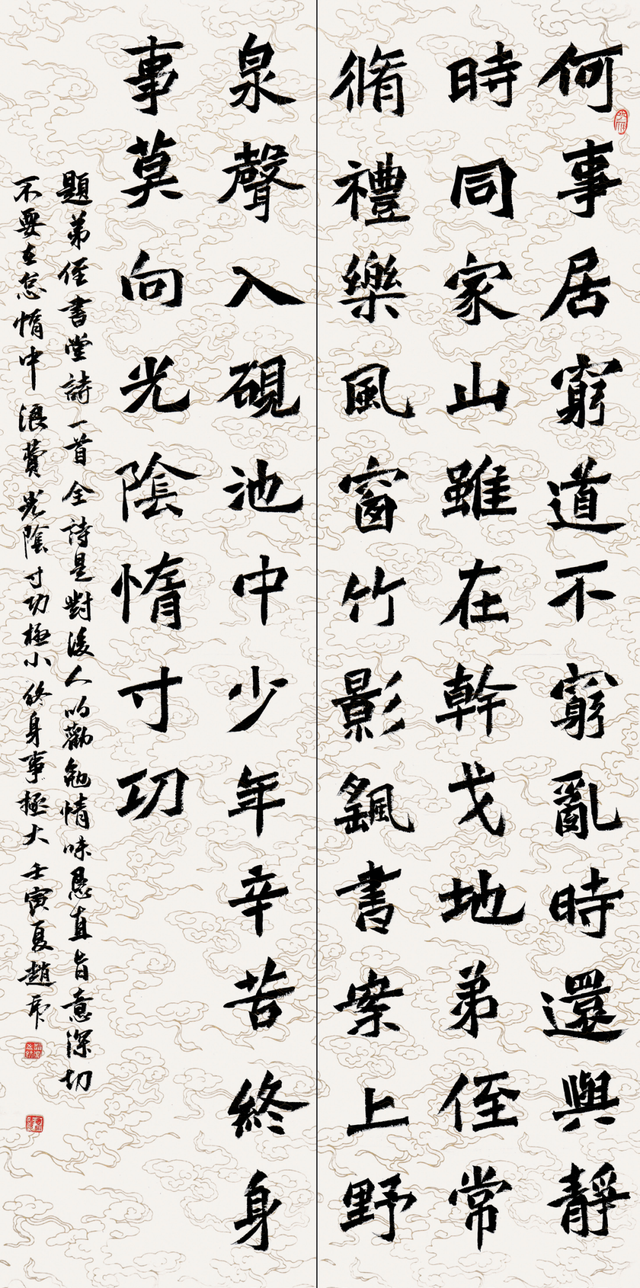 何事居窮道不窮亂時還與靜
時同家山雖在幹戈地弟侄常
脩禮樂風窗竹影颻書案上野
泉聲入硯池中少年辛苦終身
事莫向光陰惰寸功
題弟侄書堂詩一首全詩是對後人的勸勉情味懇直旨意深切
不要在怠惰中浪費光陰寸功極小終身事極大壬寅夏趙